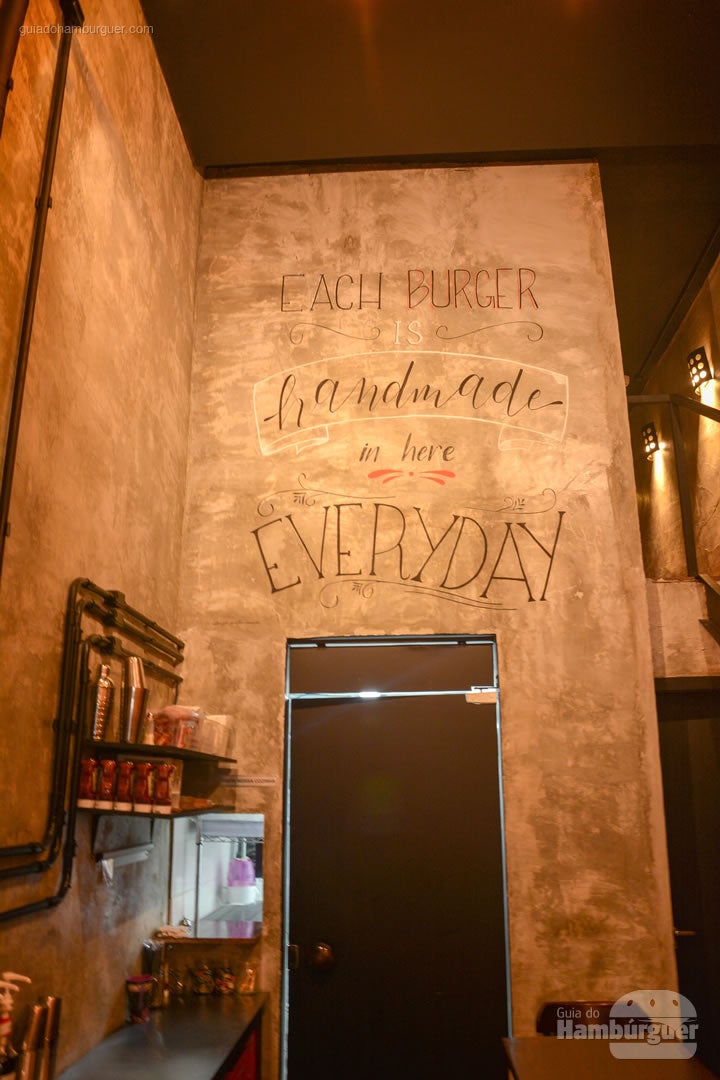 guiadohamburguer.com
EACH BURGER
IS
handmade
in here
EVERYDAY
Guia do
Hambúrguer